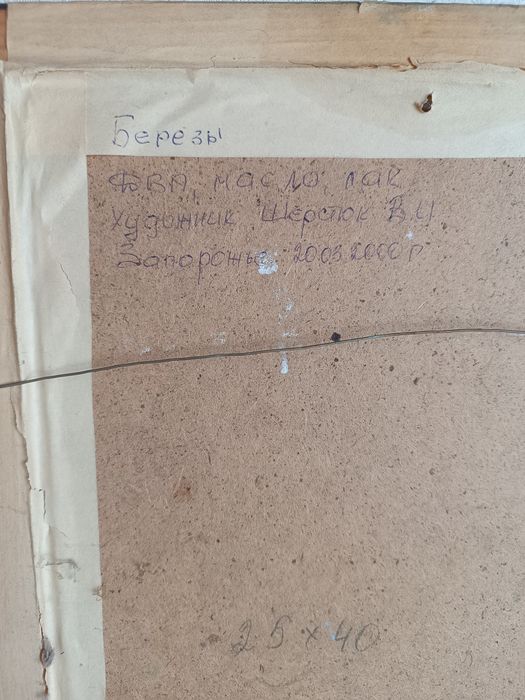 Березы
ФВА, масло, лак
Художник Шерстюк В.И
Запорожье 20.03.2000 г
25 x 40